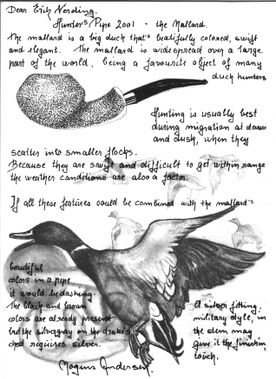 Dear Erik Nørding.
Hunter's Pipe 2001 - the Mallard.
The mallard is a big duck that's beatifully colored, swift
and elegant. The mallard is widespread over a large
part of the world, being a favourite object of many
duck hunters
Hunting is usually best
during migration at dawn
and dusk, when they
scatter into smaller flocks.
Because they are swift and difficult to get within range
the weather conditions are also a factor.
If all these features could be combined with the mallard's
beautiful
colors in a pipe
it would be dashing.
The black and brown
colors are already present
but the silvergray on the drake's
requires silver.
A silver fitting,
military style, in
the stem may
give it the finishing
touch.
Mogens Andersen